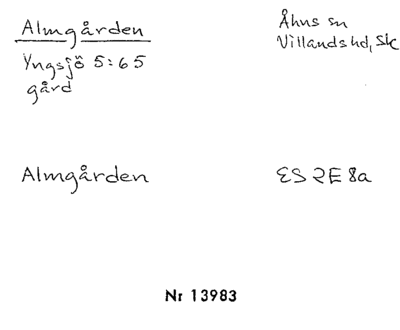 Almgården
Åhus sn
Villands hd, Sk
Yngsjö 5:65
gård
Almgården
ES 2E 8a
Nr 13983